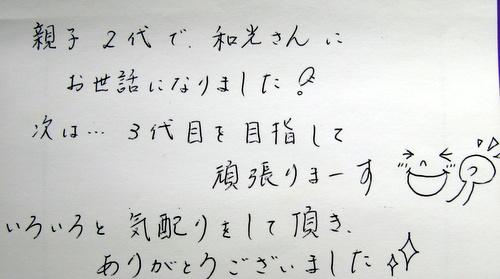 親子2代で、和光さんに
お世話になりました!
次は… 3代目を目指して
頑張りまーす
いろいろと気配りをして頂き、
ありがとうございました